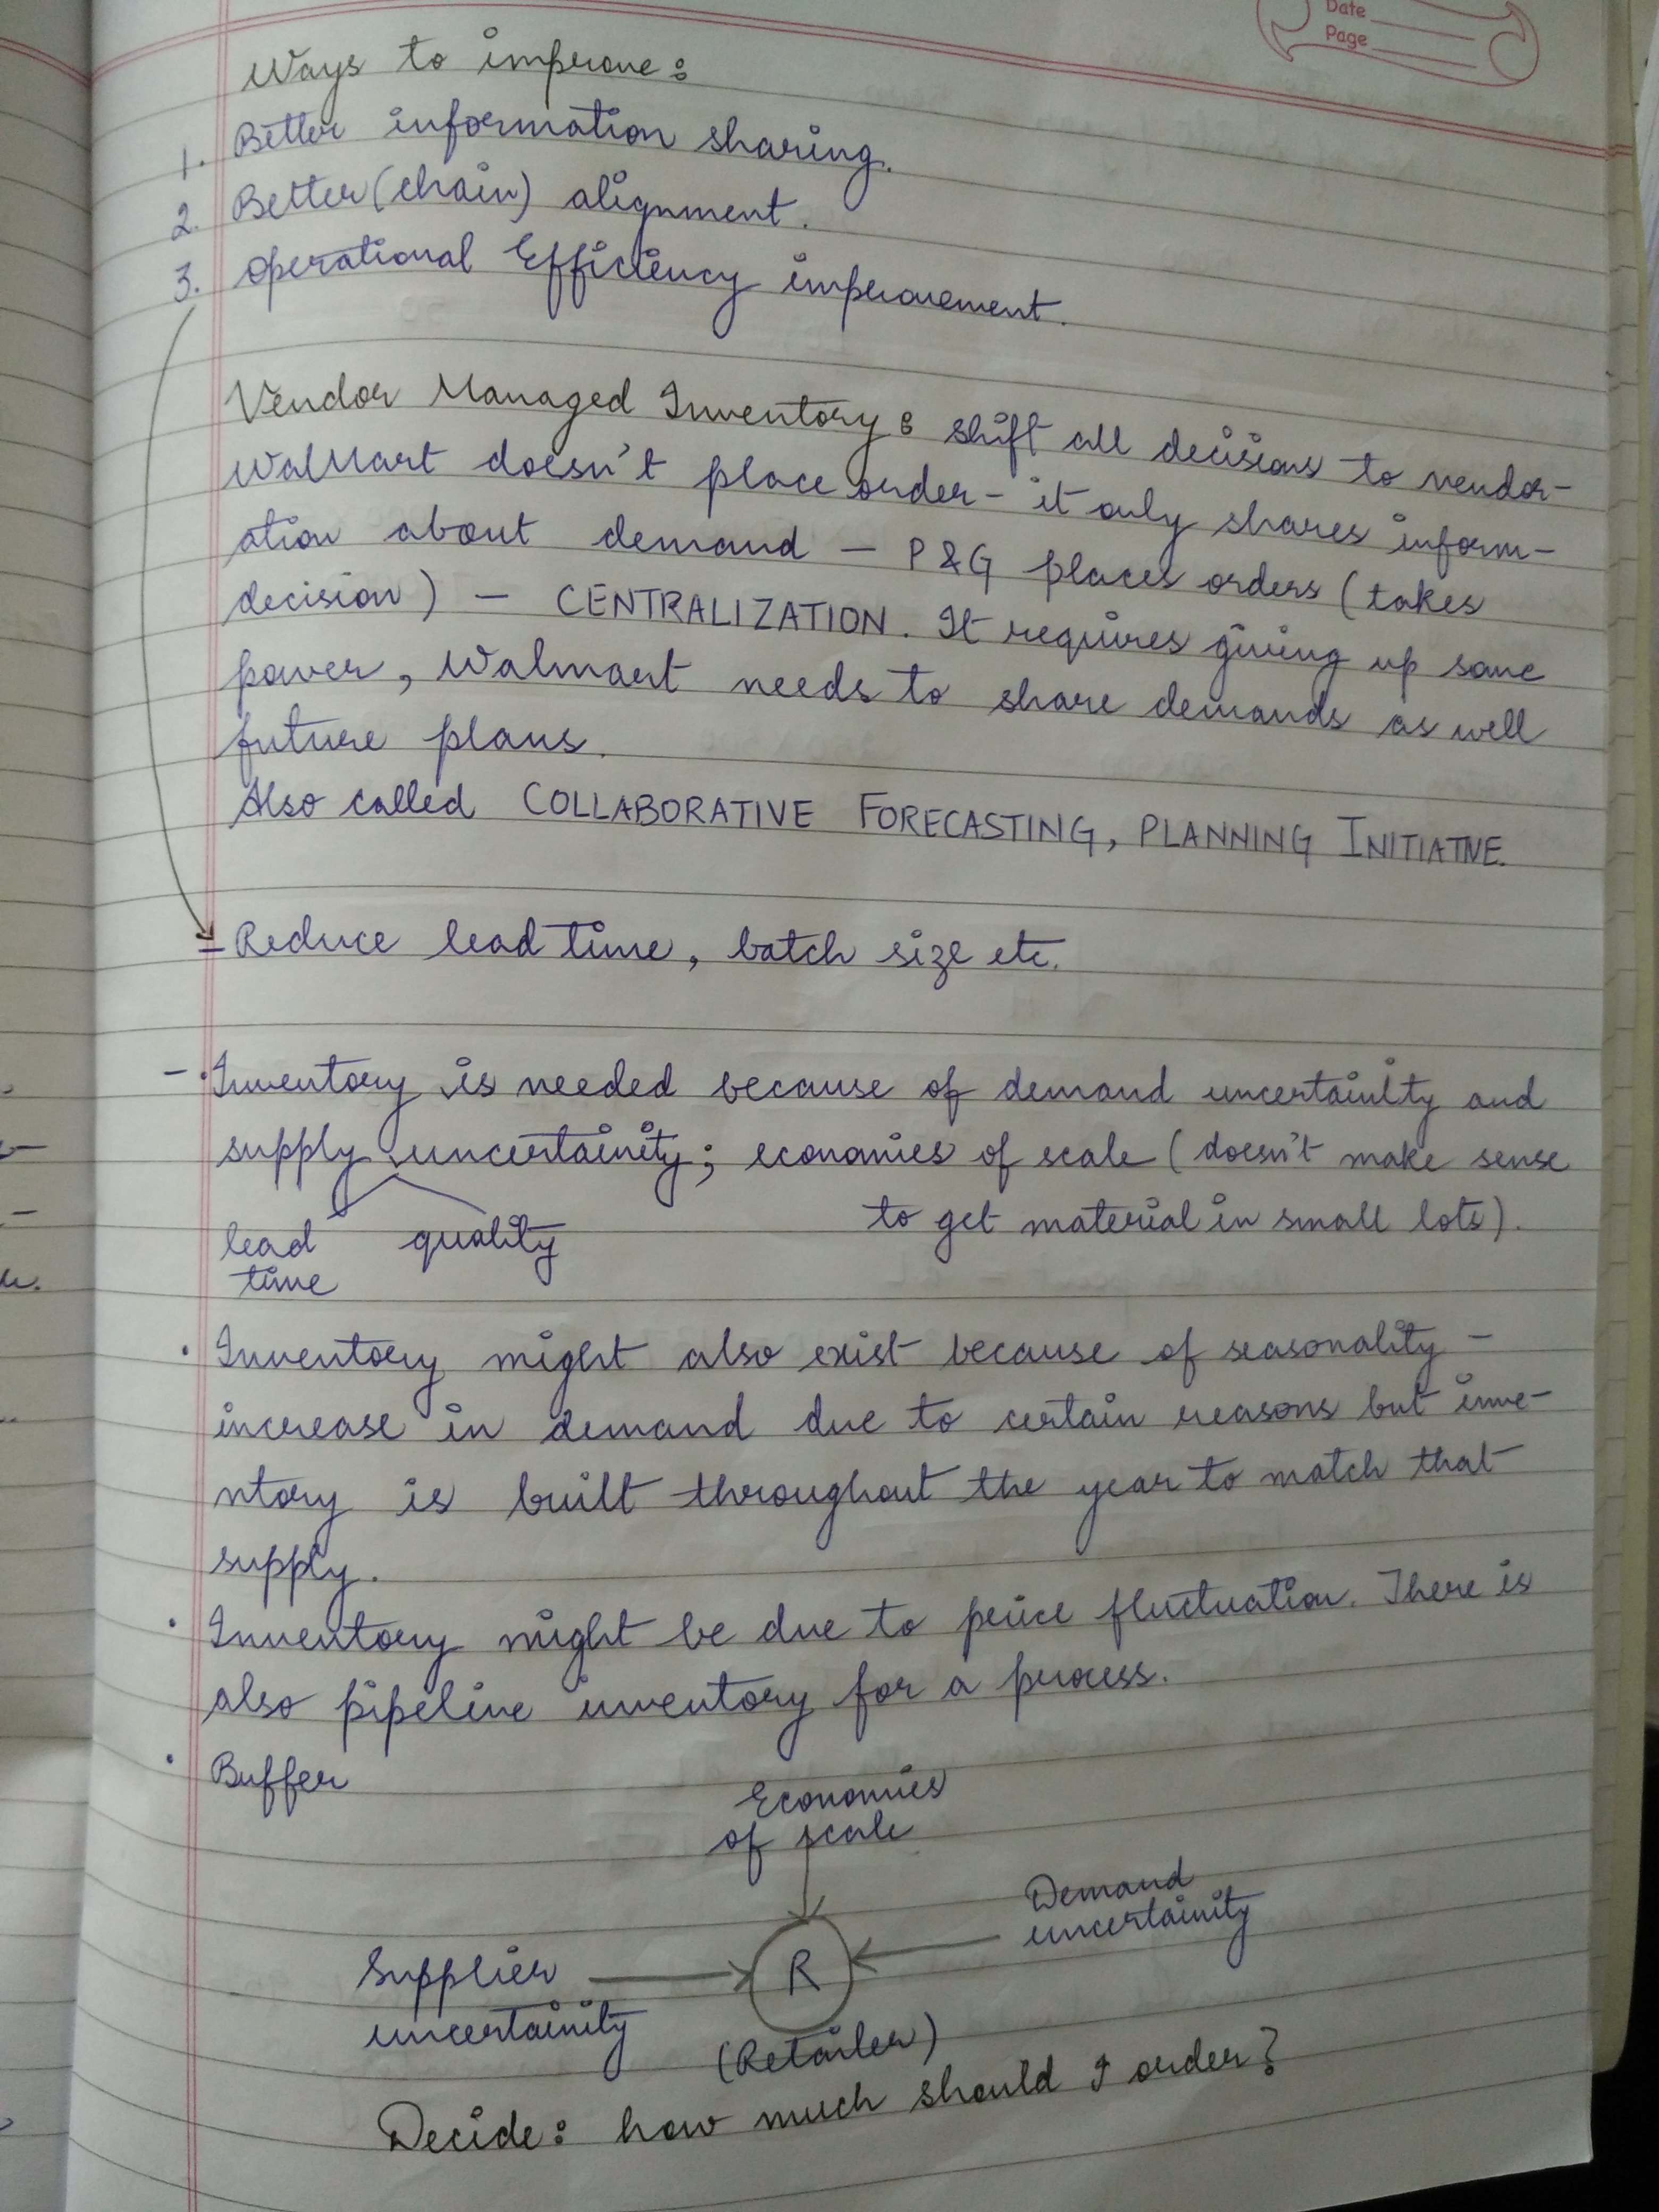 Date
Page
Ways to improve:
1. Better information sharing.
2. Better (chain) alignment.
3. Operational Efficiency improvement.
Vendor Managed Inventory: shift all decisions to vendor-
WalMart doesn't place order - it only shares inform-
ation about demand - P&G places orders (takes
decision) - CENTRALIZATION. It requires giving up some
power, Walmart needs to share demands as well
future plans.
Also called COLLABORATIVE FORECASTING, PLANNING INITIATIVE.
- Reduce lead time, batch size etc.
- · Inventory is needed because of demand uncertainity and
supply uncertainity; economies of scale (doesn't make sense
to get material in small lots).
lead quality
time
· Inventory might also exist because of seasonality -
increase in demand due to certain reasons but inve-
ntory is built throughout the year to match that
supply.
· Inventory might be due to price fluctuation. There is
also pipeline inventory for a process.
· Buffer
Economies
of scale
Demand
uncertainity
Supplier
uncertainity
R
(Retailer)
Decide: how much should I order?